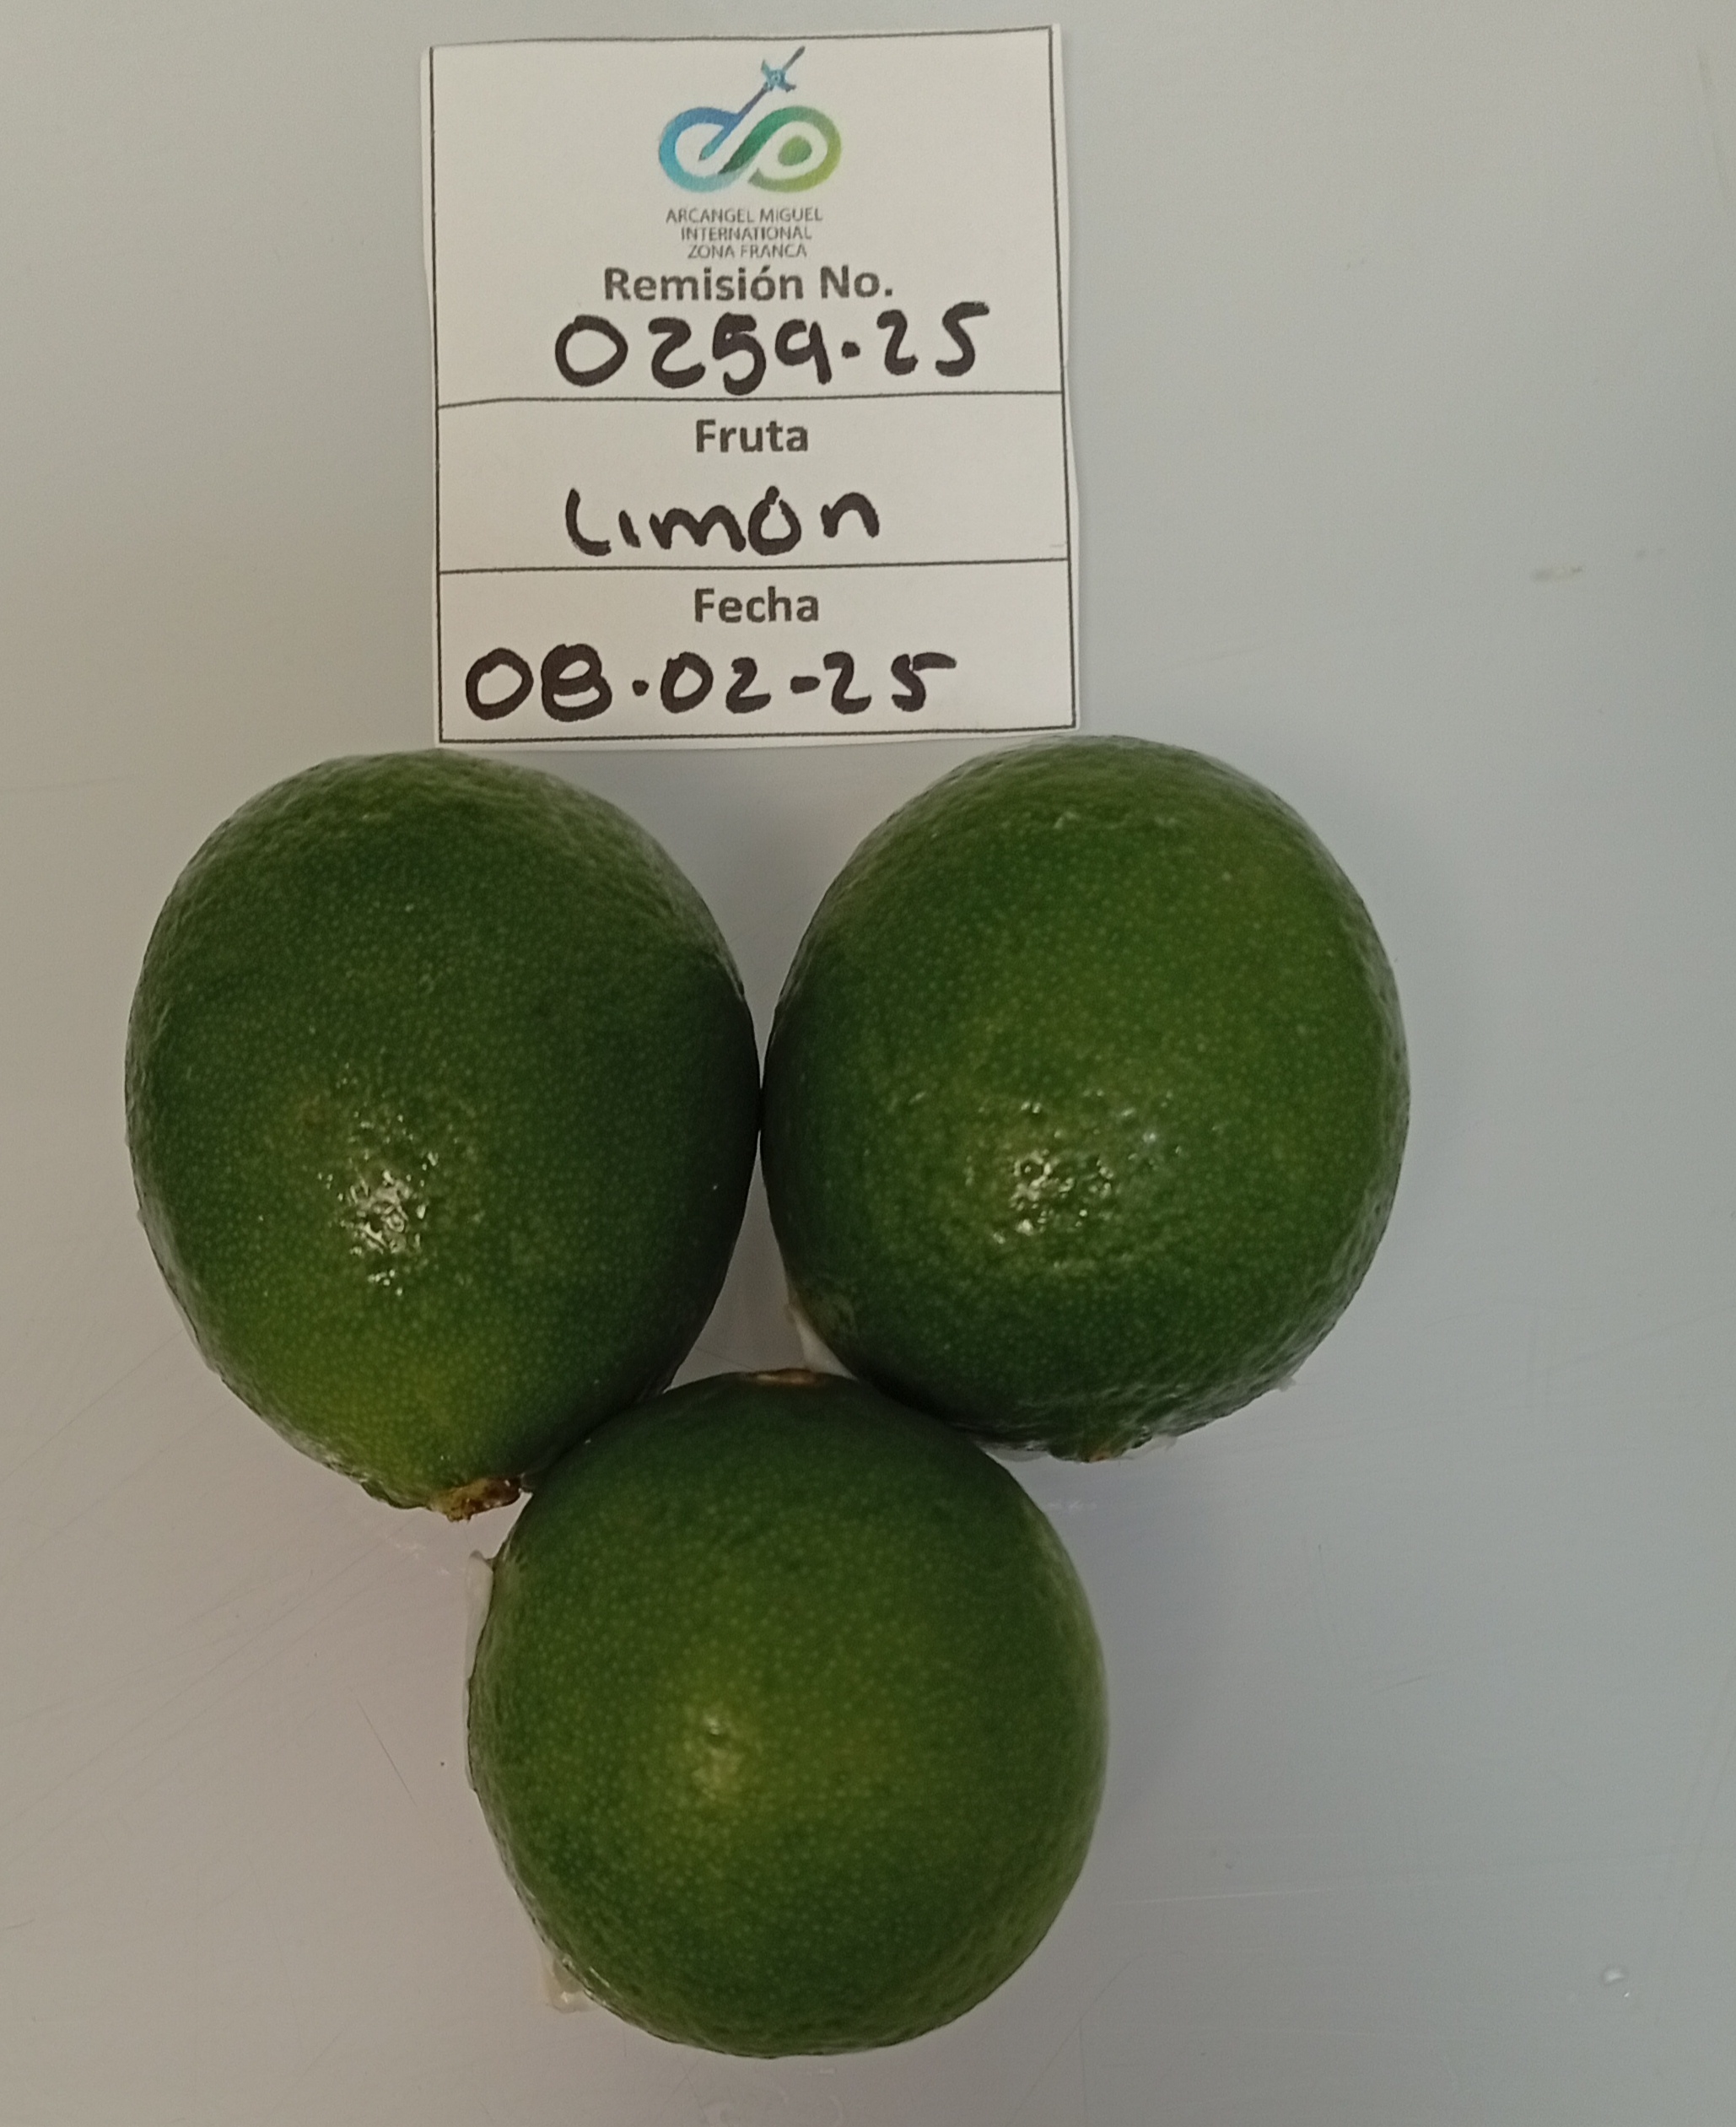 ARCANGEL MIGUEL
INTERNATIONAL
ZONA FRANCA
Remisión No.
0259.25
Fruta
Limón
Fecha
08.02-25